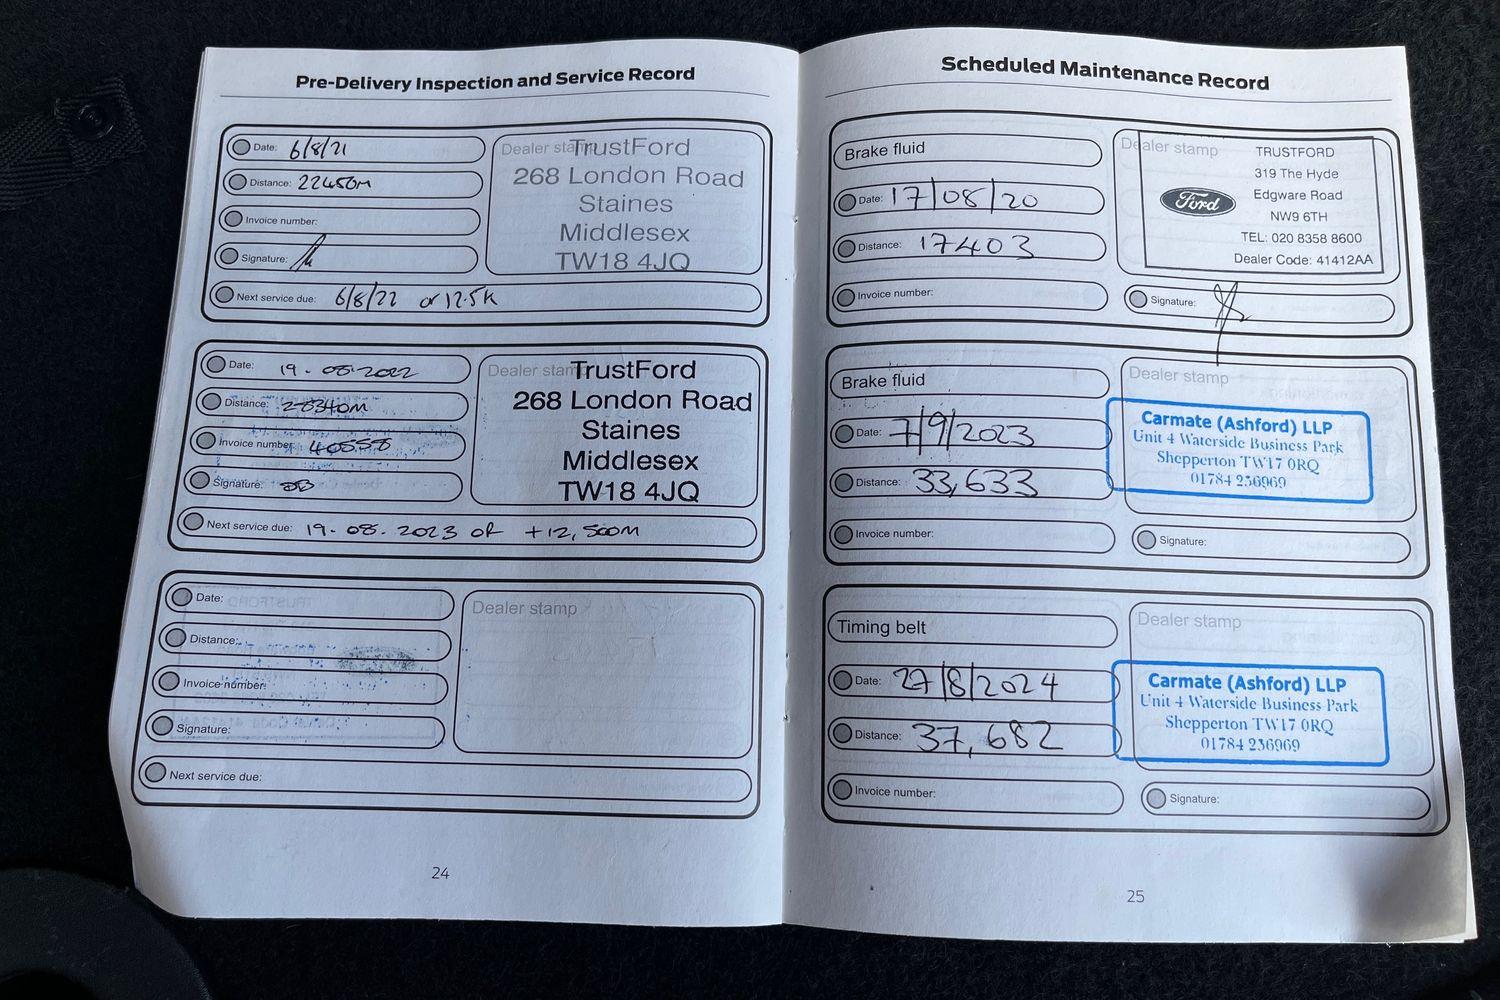 Pre-Delivery Inspection and Service Record
Date: 6/8/21
Distance: 22450m
Invoice number:
Signature:
Dealer stamp
TrustFord
268 London Road
Staines
Middlesex
TW18 4JQ
Next service due: 6/8/22 or 12.5K
Date: 19.08.2022
Distance: 28340m
Invoice number: 40558
Signature:
Dealer stamp
TrustFord
268 London Road
Staines
Middlesex
TW18 4JQ
Next service due: 19.08.2023 or +12,500m
Date:
Distance:
Invoice number:
Signature:
Dealer stamp
Next service due:
24
Scheduled Maintenance Record
Brake fluid
Date: 17/08/20
Distance: 17403
Invoice number:
Dealer stamp
Ford
TRUSTFORD
319 The Hyde
Edgware Road
NW9 6TH
TEL: 020 8358 8600
Dealer Code: 41412AA
Signature:
Brake fluid
Date: 7/9/2023
Distance: 33,633
Invoice number:
Dealer stamp
Carmate (Ashford) LLP
Unit 4 Waterside Business Park
Shepperton TW17 0RQ
01784 256969
Signature:
Timing belt
Date: 27/8/2024
Distance: 37,682
Invoice number:
Dealer stamp
Carmate (Ashford) LLP
Unit 4 Waterside Business Park
Shepperton TW17 0RQ
01784 256969
Signature:
25